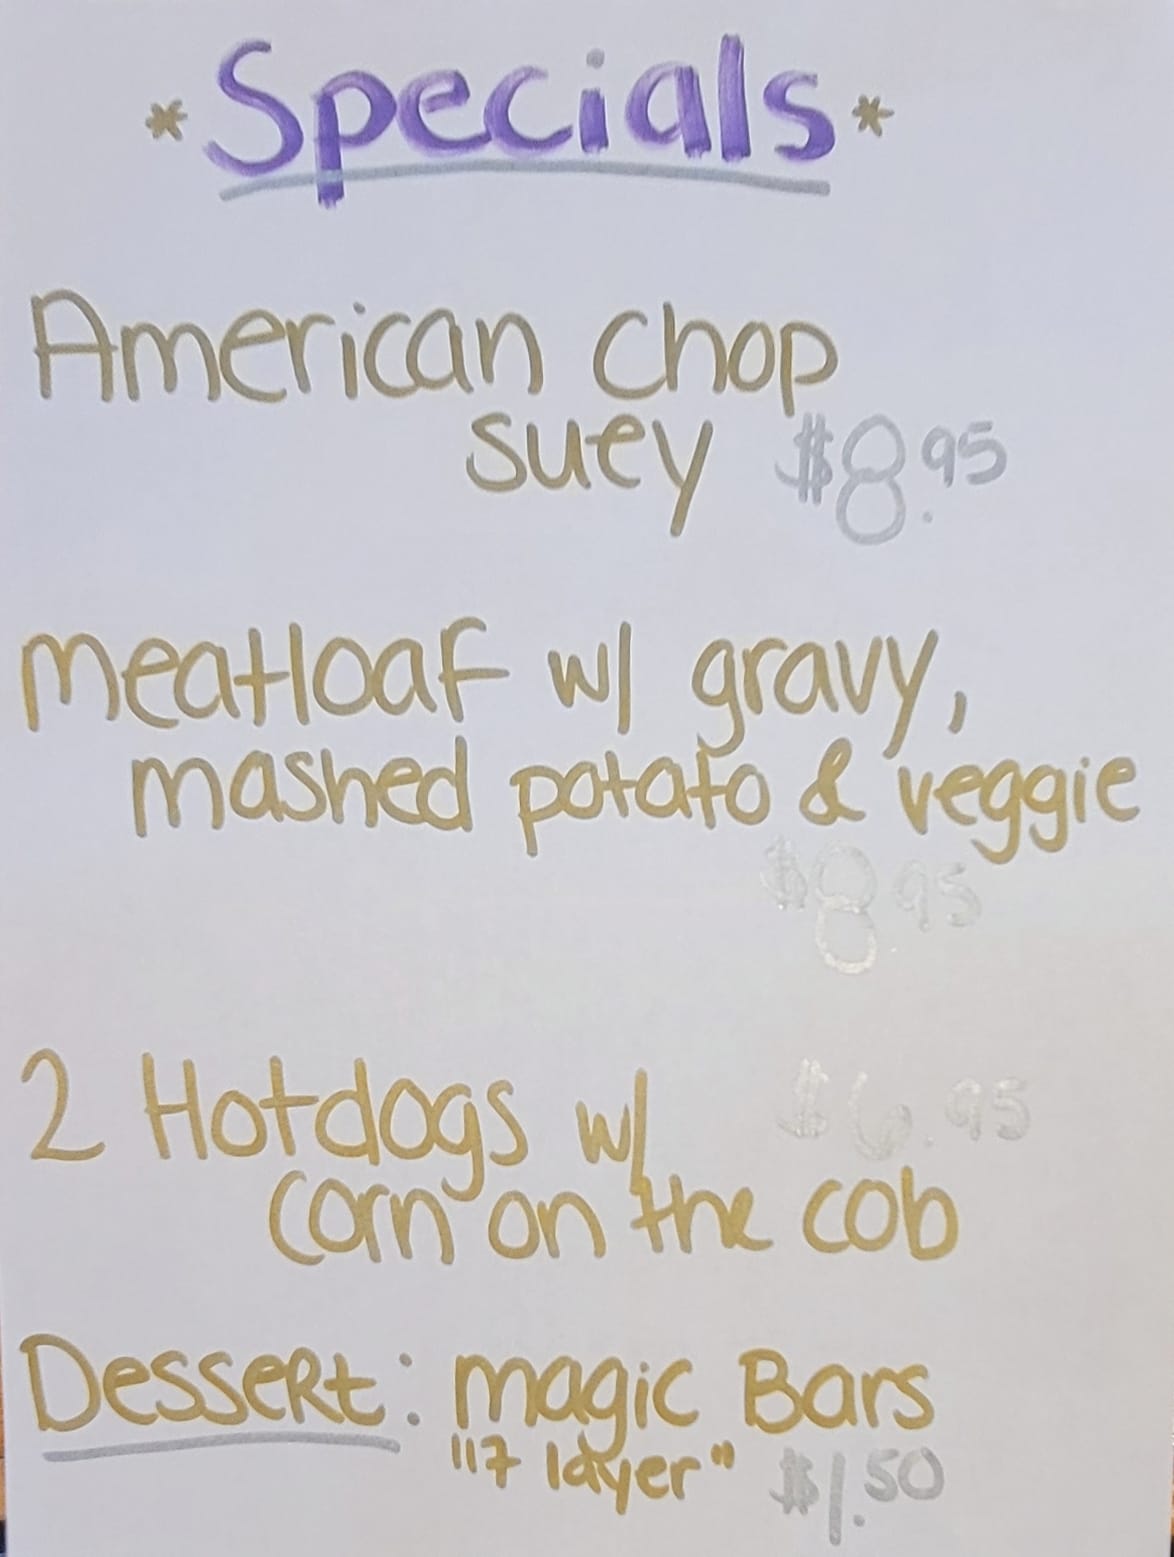 * Specials *
American chop
suey $8.95
meatloaf w/ gravy,
mashed potato & veggie
$8.95
2 Hotdogs w/ $6.95
corn on the cob
Dessert: magic Bars
"7 layer" $1.50